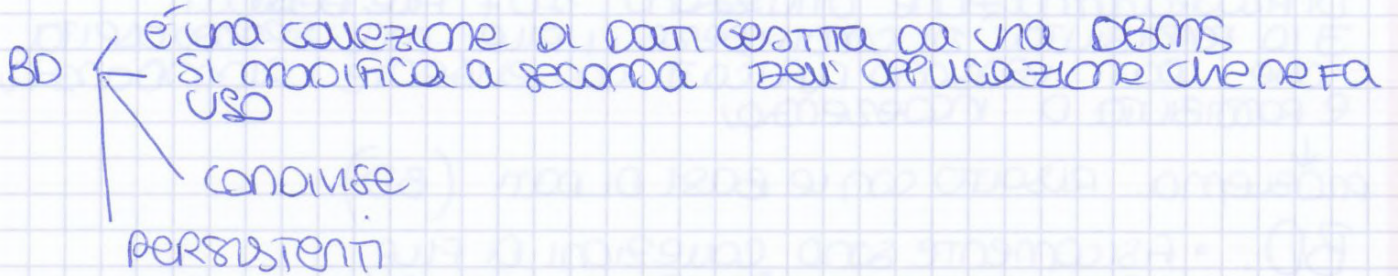 è una collezione di dati gestita da una DBMS
BD si modifica a seconda dell'applicazione che ne fa
uso
condivise
persistenti